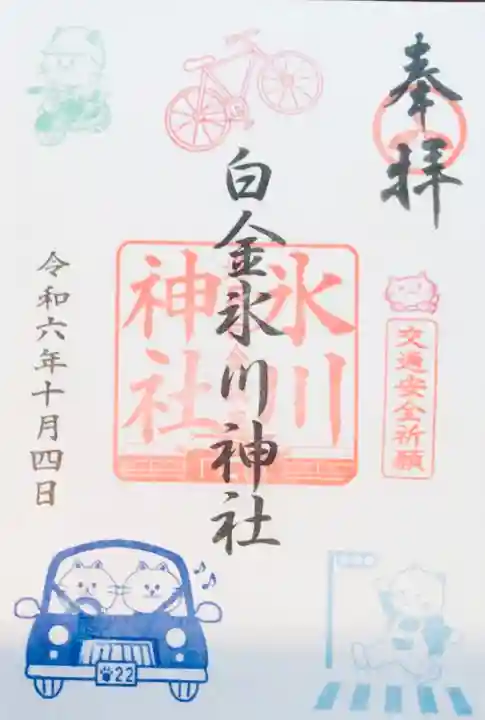 奉拝
交通安全祈願
氷川
神社
白金氷川神社
令和六年十月四日
22